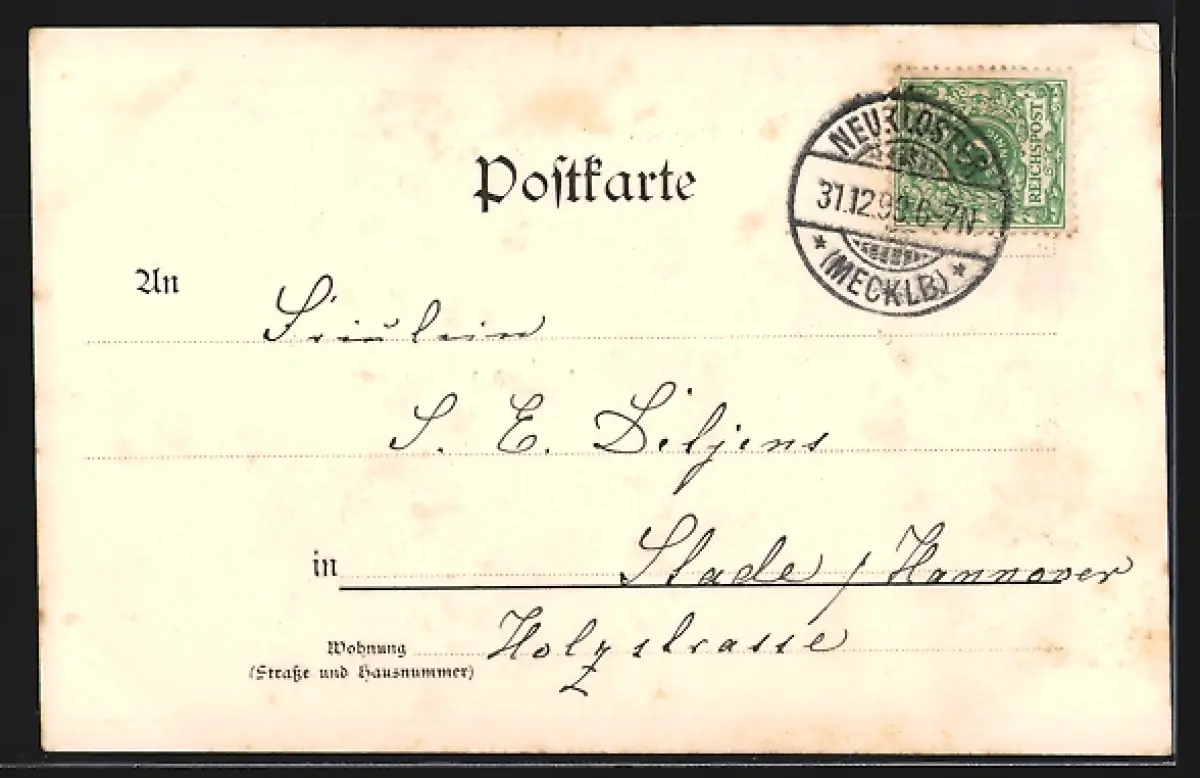 Postkarte
REICHSPOST
NEUKLOSTER
31.12.9 6-7N
* (MECKLB) *
An
Fräulein
S. E. Diljens
in Stade / Hannover
Wohnung Holzstrasse
(Straße und Hausnummer)